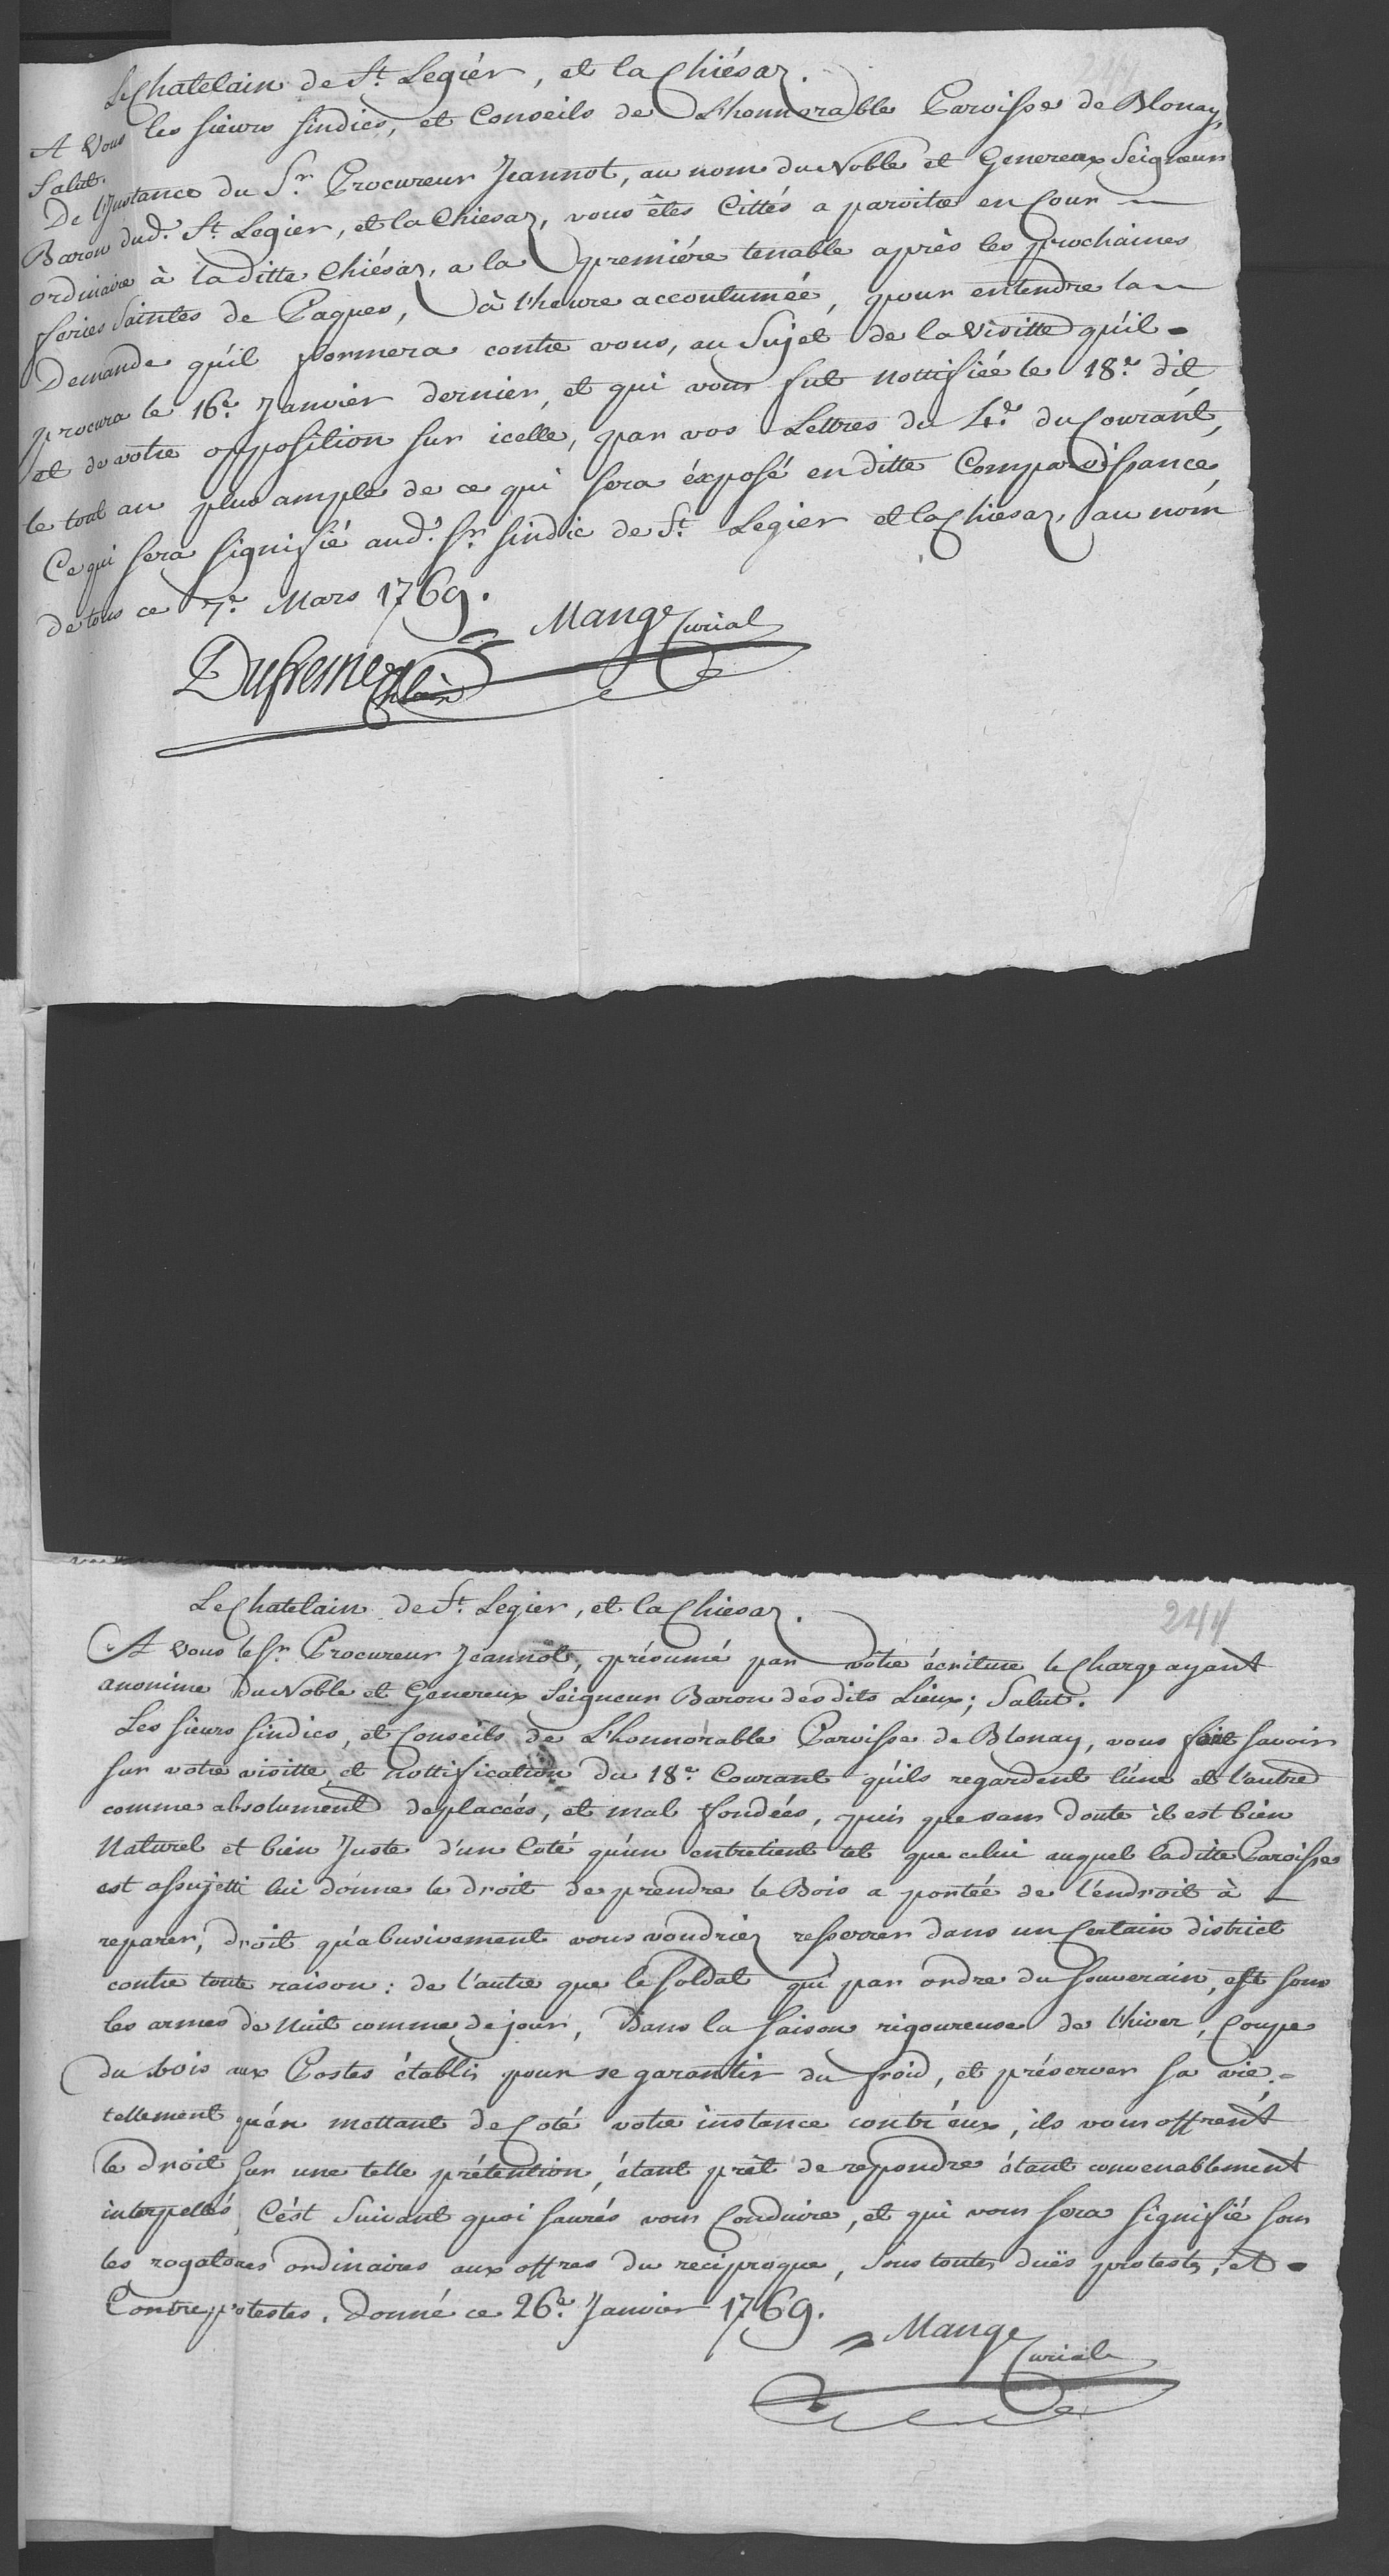 Le Chatelain de St. Legier, et la Chiésaz.
A vous les sieurs sindics, et Conseils de L'honnorable Paroisse de Blonay,
Salut.
De l'Instance du Sr. Procureur Jeannot, au nom du Noble et Genereux Seigneur
Baron dud. St. Legier, et la Chiesaz, vous êtes Cittés a paroitre en Cour
ordinaire à la ditte Chiésaz, a la premiére tenable après les prochaines
feries Saintes de Paques, à l'heure accoutumée, pour entendre la
Demande qu'il formera contre vous, au Sujet de la Visitte qu'il
procura le 16e. Janvier dernier, et qui vous fut nottifiée le 18e. dit
et de votre opposition sur icelle, par vos Lettres du 4e. du Courant,
le tout au plus ample de ce qui sera éxposé en ditte Comparoissance,
Ce qui sera signifié aud. Sr. sindic de St. Legier et la Chiesaz, au nom
de tous ce 7e. Mars 1769.
Mange Curial
Dufresne Chlain
244
Le Chatelain de St. Legier, et la Chiesaz.
A vous le Sr. Procureur Jeannot, présumé par votre écriture le Charge ayant
anonime du Noble et Genereux Seigneur Baron desdits Lieux; Salut.
Les sieurs sindics, et Conseils de L'honnorable Paroisse de Blonay, vous font savoir
sur votre visitte et nottification du 18e. Courant qu'ils regardent l'une et l'autre
comme absolument deplaccés, et mal fondées, puis que sans doute il est bien
Naturel et bien Juste d'un Coté qu'un entretient tel que celui auquel la ditte Paroisse
est assujetti lui donne le droit de prendre le Bois a portée de l'endroit à
reparer, droit qu'abusivement vous voudriez resserrer dans un Certain district
contre toute raison: de l'autre que le soldat qui par ordre du souverain, est sous
les armes de Nuit comme de jour, dans la saison rigoureuse de l'hiver, Coupe
du bois aux Postes établis pour se garantir du froid, et préserver sa vie;
tellement qu'én mettant de Coté votre instance contr'eux, ils vous offrent
le droit sur une telle prétention, étant prêt de repondre étant convenablement
interpellés, C'ést Suivant quoi saurés vous Conduire, et qui vous sera signifié sous
les rogatoires ordinaires aux offres du reciproque, sous toutes duës protestes, et
Contreprotestes. Donné ce 26e. Janvier 1769.
Mange Curial